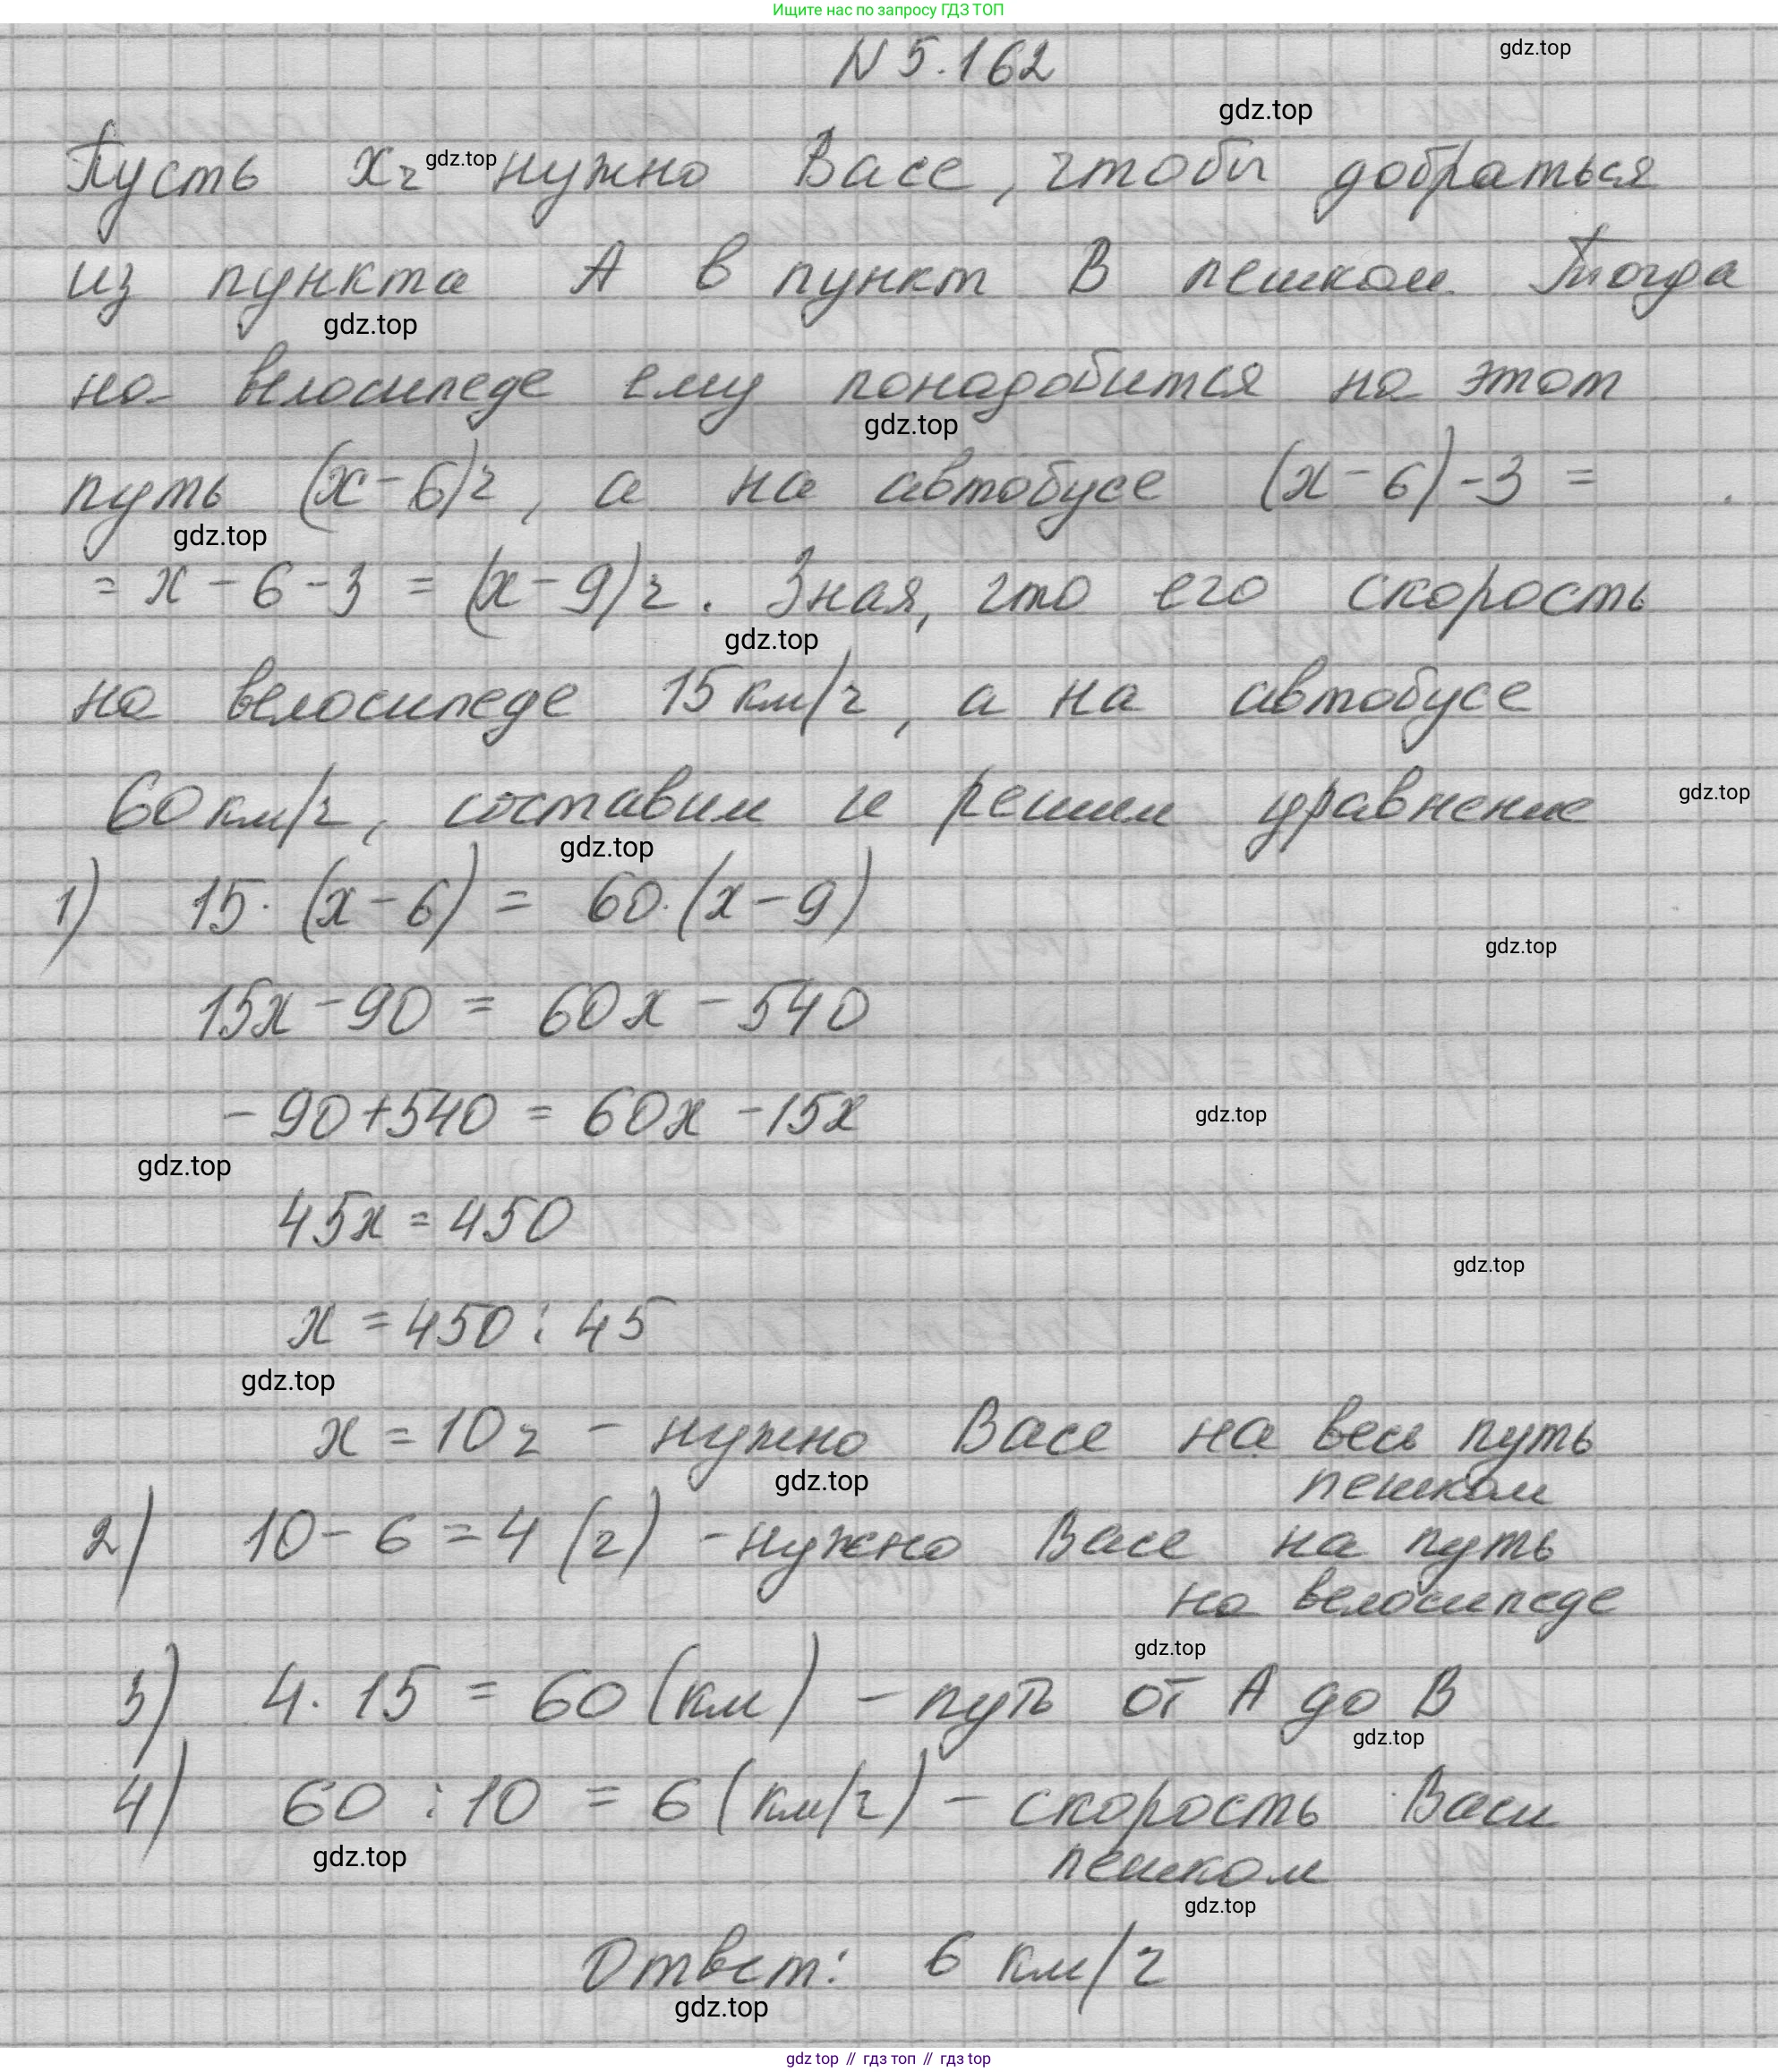 Ищите нас по запросу ГДЗ ТОП
N 5.162
gdz.top
gdz.top
Пусть xч gdz.top нужно Васе, чтобы добраться
из пункта А в пункт В пешком. Тогда
gdz.top
на велосипеде ему понадобится на этот
gdz.top
путь (x-6)ч, а на автобусе (x-6)-3 =
gdz.top
= x - 6 - 3 = (x-9)ч. Зная, что его скорость
gdz.top
на велосипеде 15 км/ч, а на автобусе
60 км/ч, составим и решим уравнение
gdz.top
gdz.top
1) 15·(x-6) = 60·(x-9)
gdz.top
15x - 90 = 60x - 540
-90+540 = 60x -15x
gdz.top
gdz.top
45x = 450
gdz.top
x = 450 : 45
gdz.top
x = 10 ч - нужно Васе на весь путь
gdz.top
пешком
2) 10 - 6 = 4 (ч) - нужно Васе на путь
на велосипеде
gdz.top
3) 4 · 15 = 60 (км) - путь от А до В
gdz.top
4) 60 : 10 = 6 (км/ч) - скорость Васи
gdz.top
пешком
gdz.top
Ответ: 6 км/ч
gdz.top
gdz top // гдз топ // gdz top